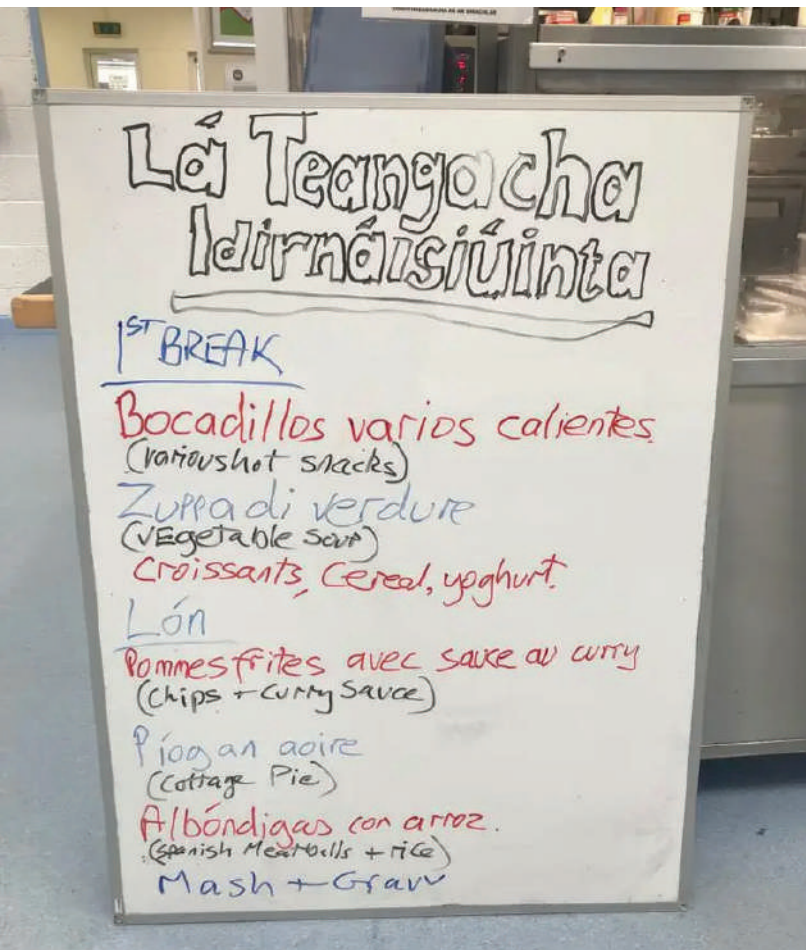 Lá Teangacha
Idirnáisiúinta
1ST BREAK
Bocadillos varios calientes
(various hot snacks)
Zuppa di verdure
(VEgetable soup)
Croissants, Cereal, yoghurt.
Lón
Pommes frites avec sauce au curry
(Chips + Curry Sauce)
Píog an aoire
(Cottage Pie)
Albóndigas con arroz.
(Spanish Meatballs + rice)
Mash + Gravy